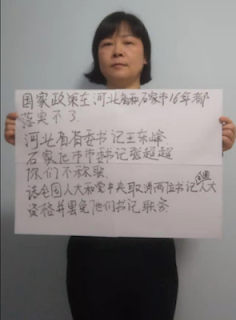 国家政策在河北省石家市16年都
落实不了
河北省省委书记王东峰
石家庄市市委书记张超超
你们不称职
请全国人大和党中央取消两位书记人大
资格并罢免他们书记职务